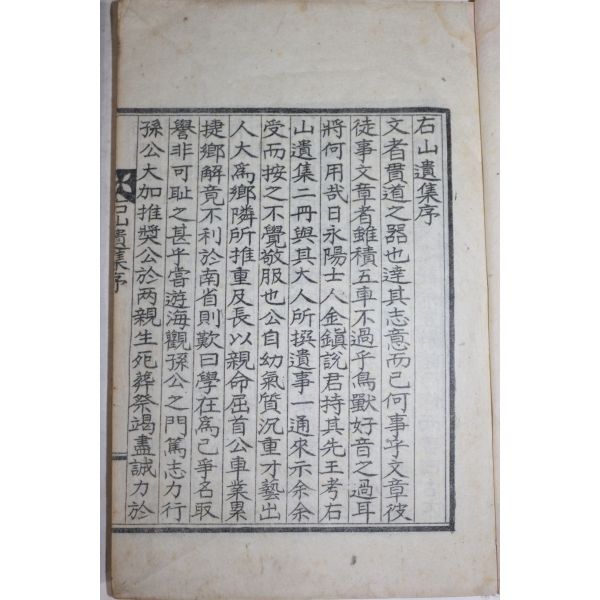 右山遺集序
文者貫道之器也達其志意而已何事乎文章彼
徒事文章者雖積五車不過乎鳥獸好音之過耳
將何用哉日永陽士人金鎭說君持其先王考右
山遺集二冊與其大人所撰遺事一通來示余余
受而按之不覺敬服也公自幼氣質沉重才藝出
人大爲鄕隣所推重及長以親命屈首公車業累
捷鄕解竟不利於南省則歎曰學在爲己爭名取
譽非可恥之甚乎嘗遊海觀孫公之門篤志力行
孫公大加推奬公於两親生死葬祭竭盡誠力於
右山遺集序